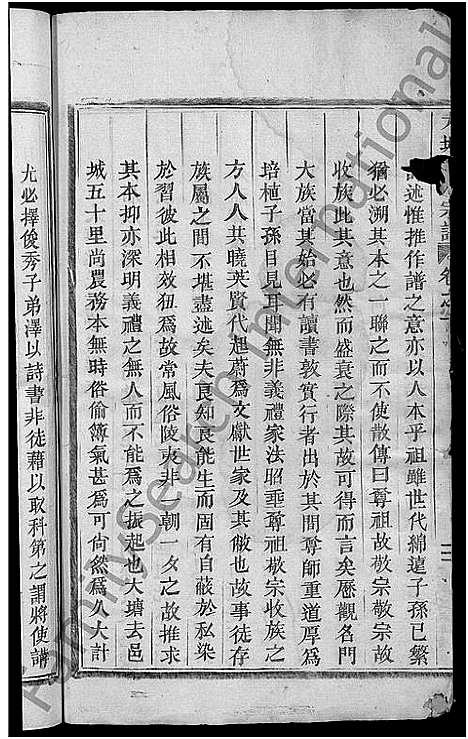 述惟推作譜之意亦以人本乎祖雖世代綿遠子孫已繁
猶必溯其本之一聯之而不使散傳曰尊祖故敬宗敬宗故
收族此其意也然而盛衰之際其故可得而言矣歷觀名門
大族當其始必有讀書敦實行者出於其間尊師重道厚爲
培植子孫目見耳聞無非義禮家法昭垂尊祖敬宗收族之
方人人共曉英賢代起蔚爲文獻世家及其敝也故事徒存
族屬之間不堪盡述矣夫良知良能生而固有自蔽於私染
於習彼此相效狃爲故常風俗陵夷非一朝一夕之故推求
其本抑亦深明義禮之無人而不能爲之振起也大塘去邑
城五十里尚農務本無時俗偷簿氣甚爲可尙然爲久大計
尤必擇俊秀子弟澤以詩書非徒藉以取科第之謂將使講
FamilySearch International